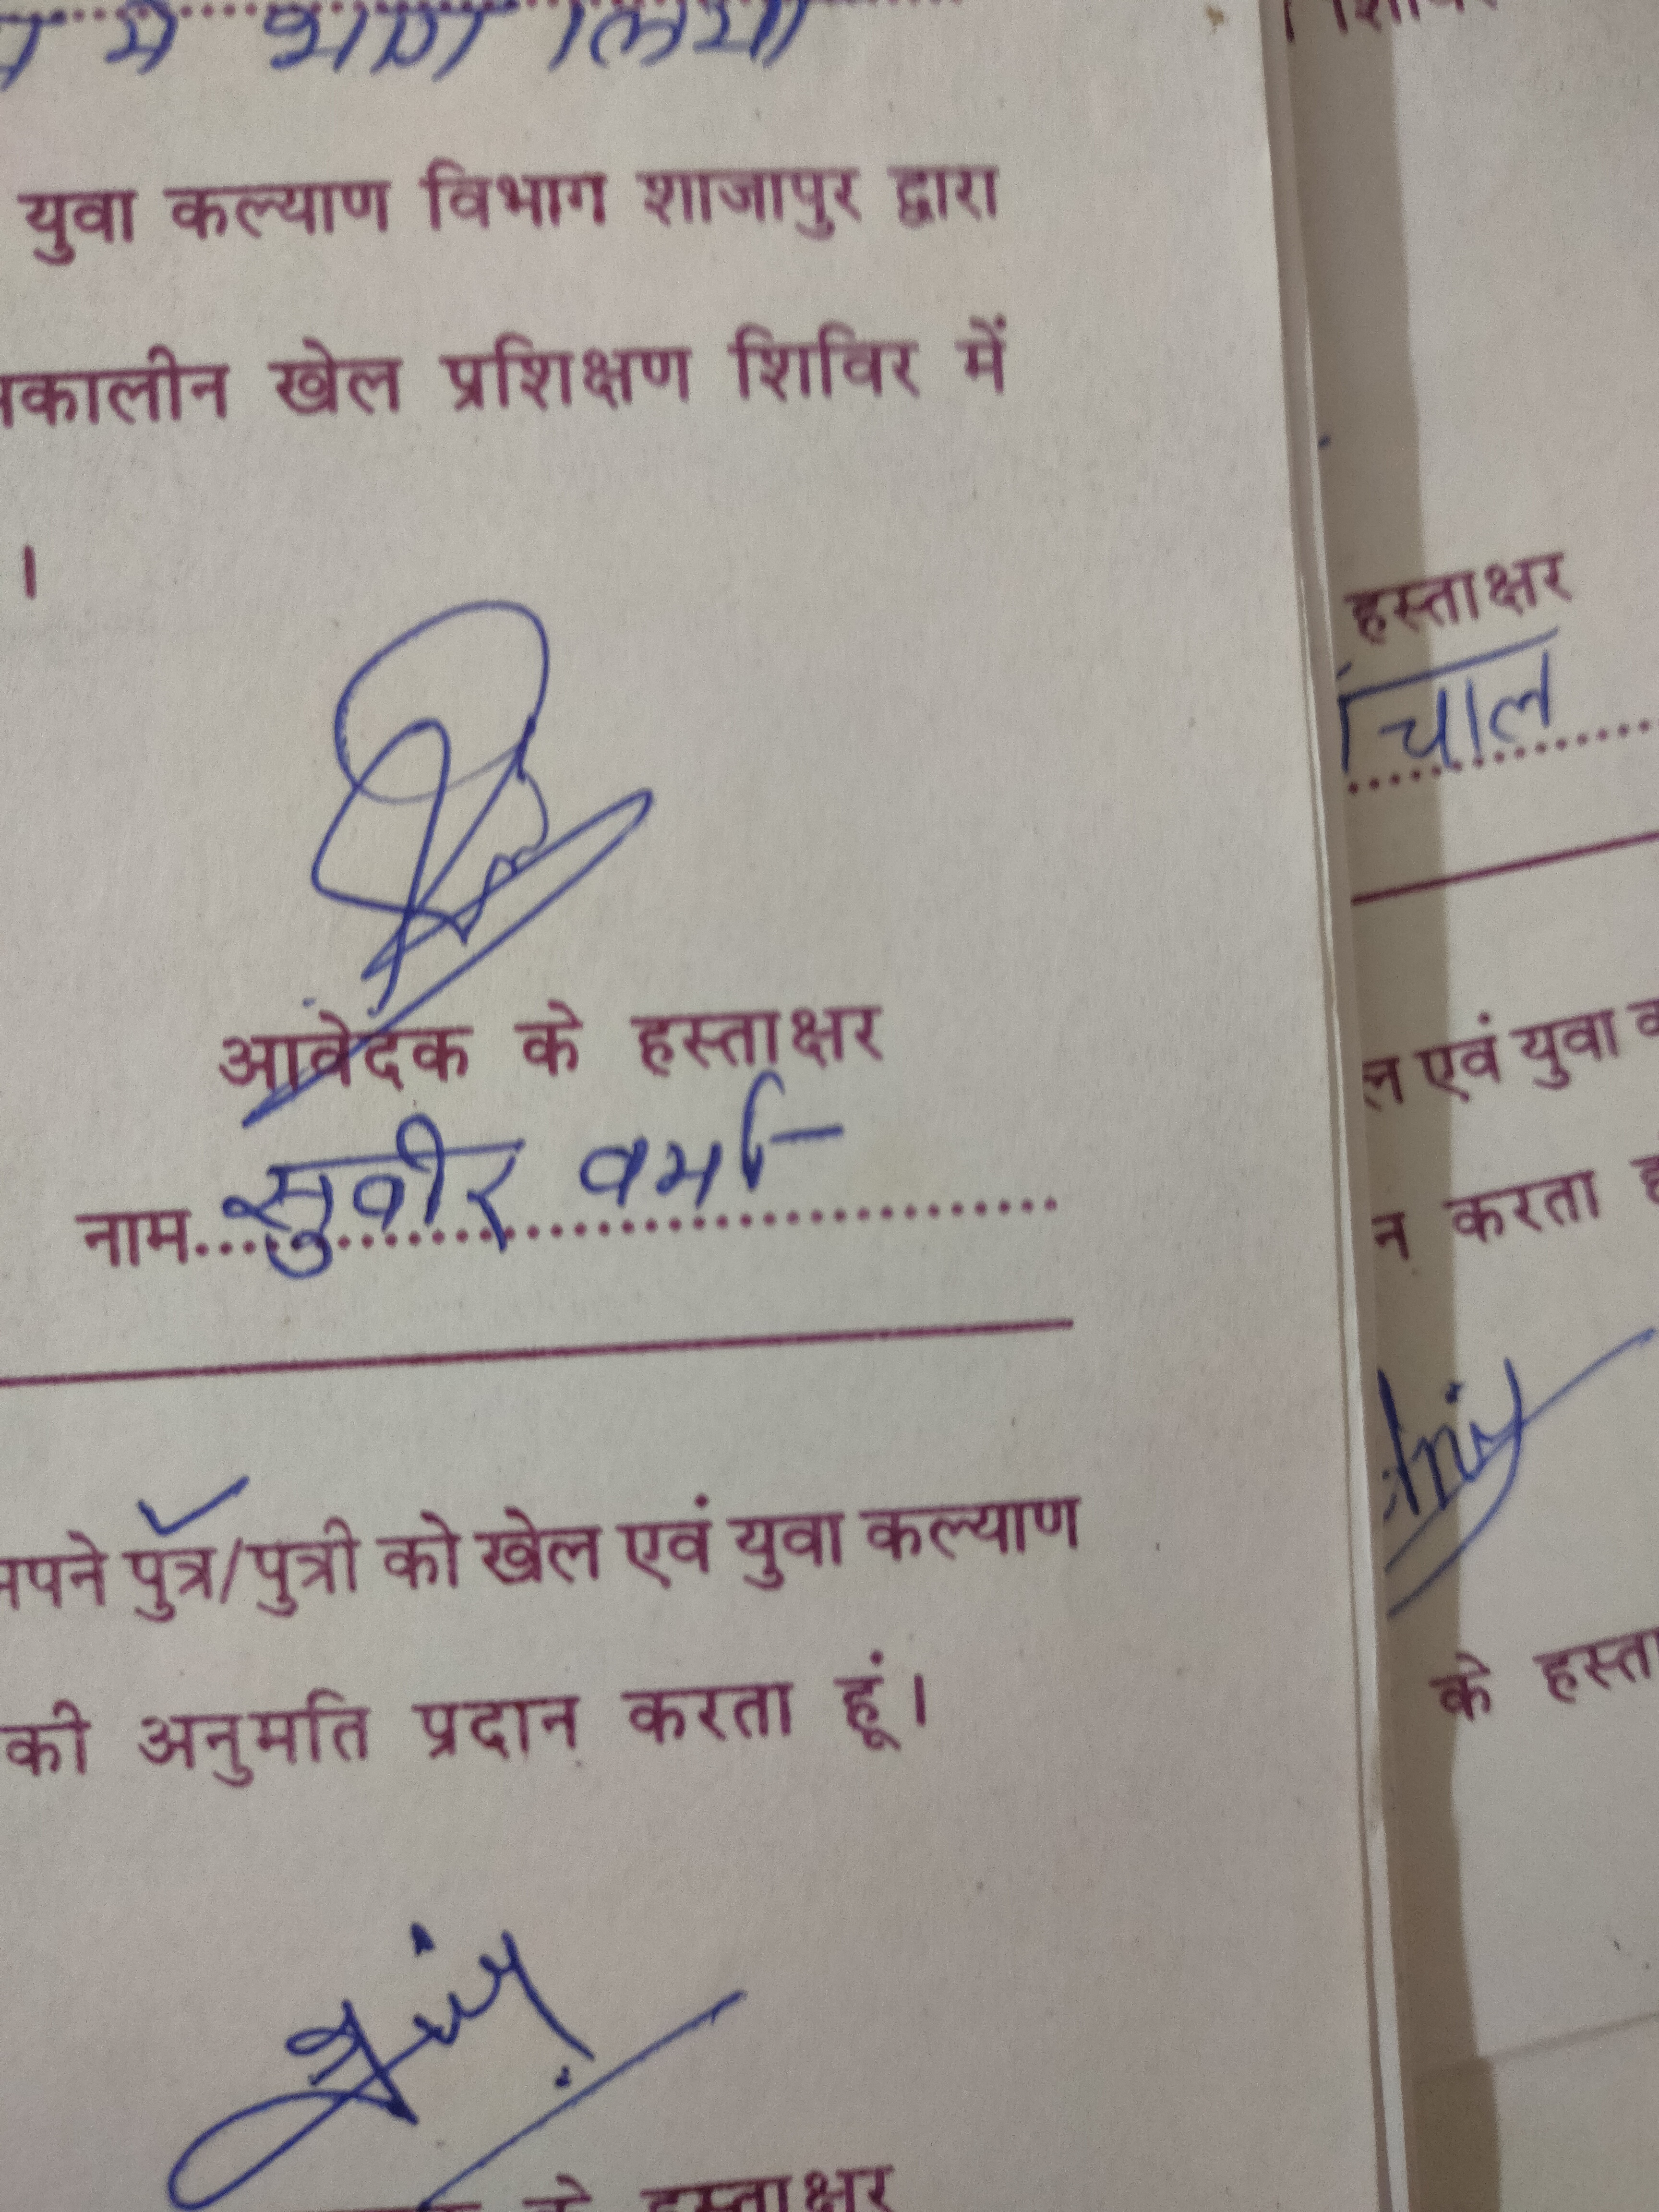 में भाग लिया
युवा कल्याण विभाग शाजापुर द्वारा
कालीन खेल प्रशिक्षण शिविर में
।
आवेदक के हस्ताक्षर
नाम सुवीर वर्मा
अपने पुत्र/पुत्री को खेल एवं युवा कल्याण
की अनुमति प्रदान करता हूं।
के हस्ताक्षर
हस्ताक्षर
चाल
ल एवं युवा
न करता
के हस्ता